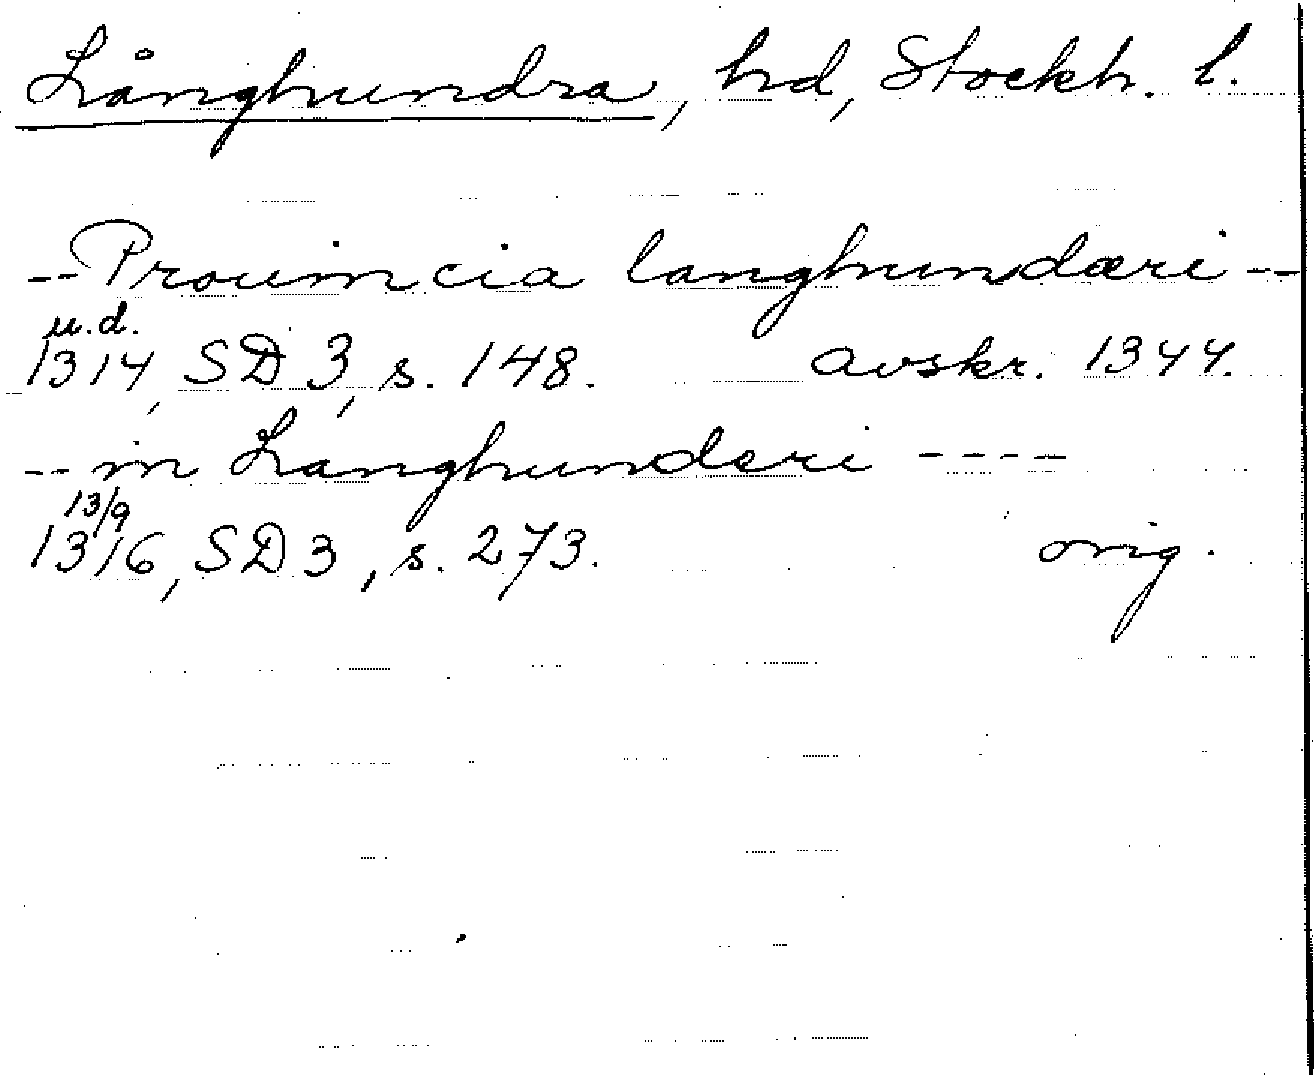 Långhundra, hd, Stockh. l.
-- Prouincia langhundæri --
u.d.
1314, SD 3, s. 148. avskr. 1344.
-- in Langhunderi ----
13/9
1316, SD 3, s. 273. orig.